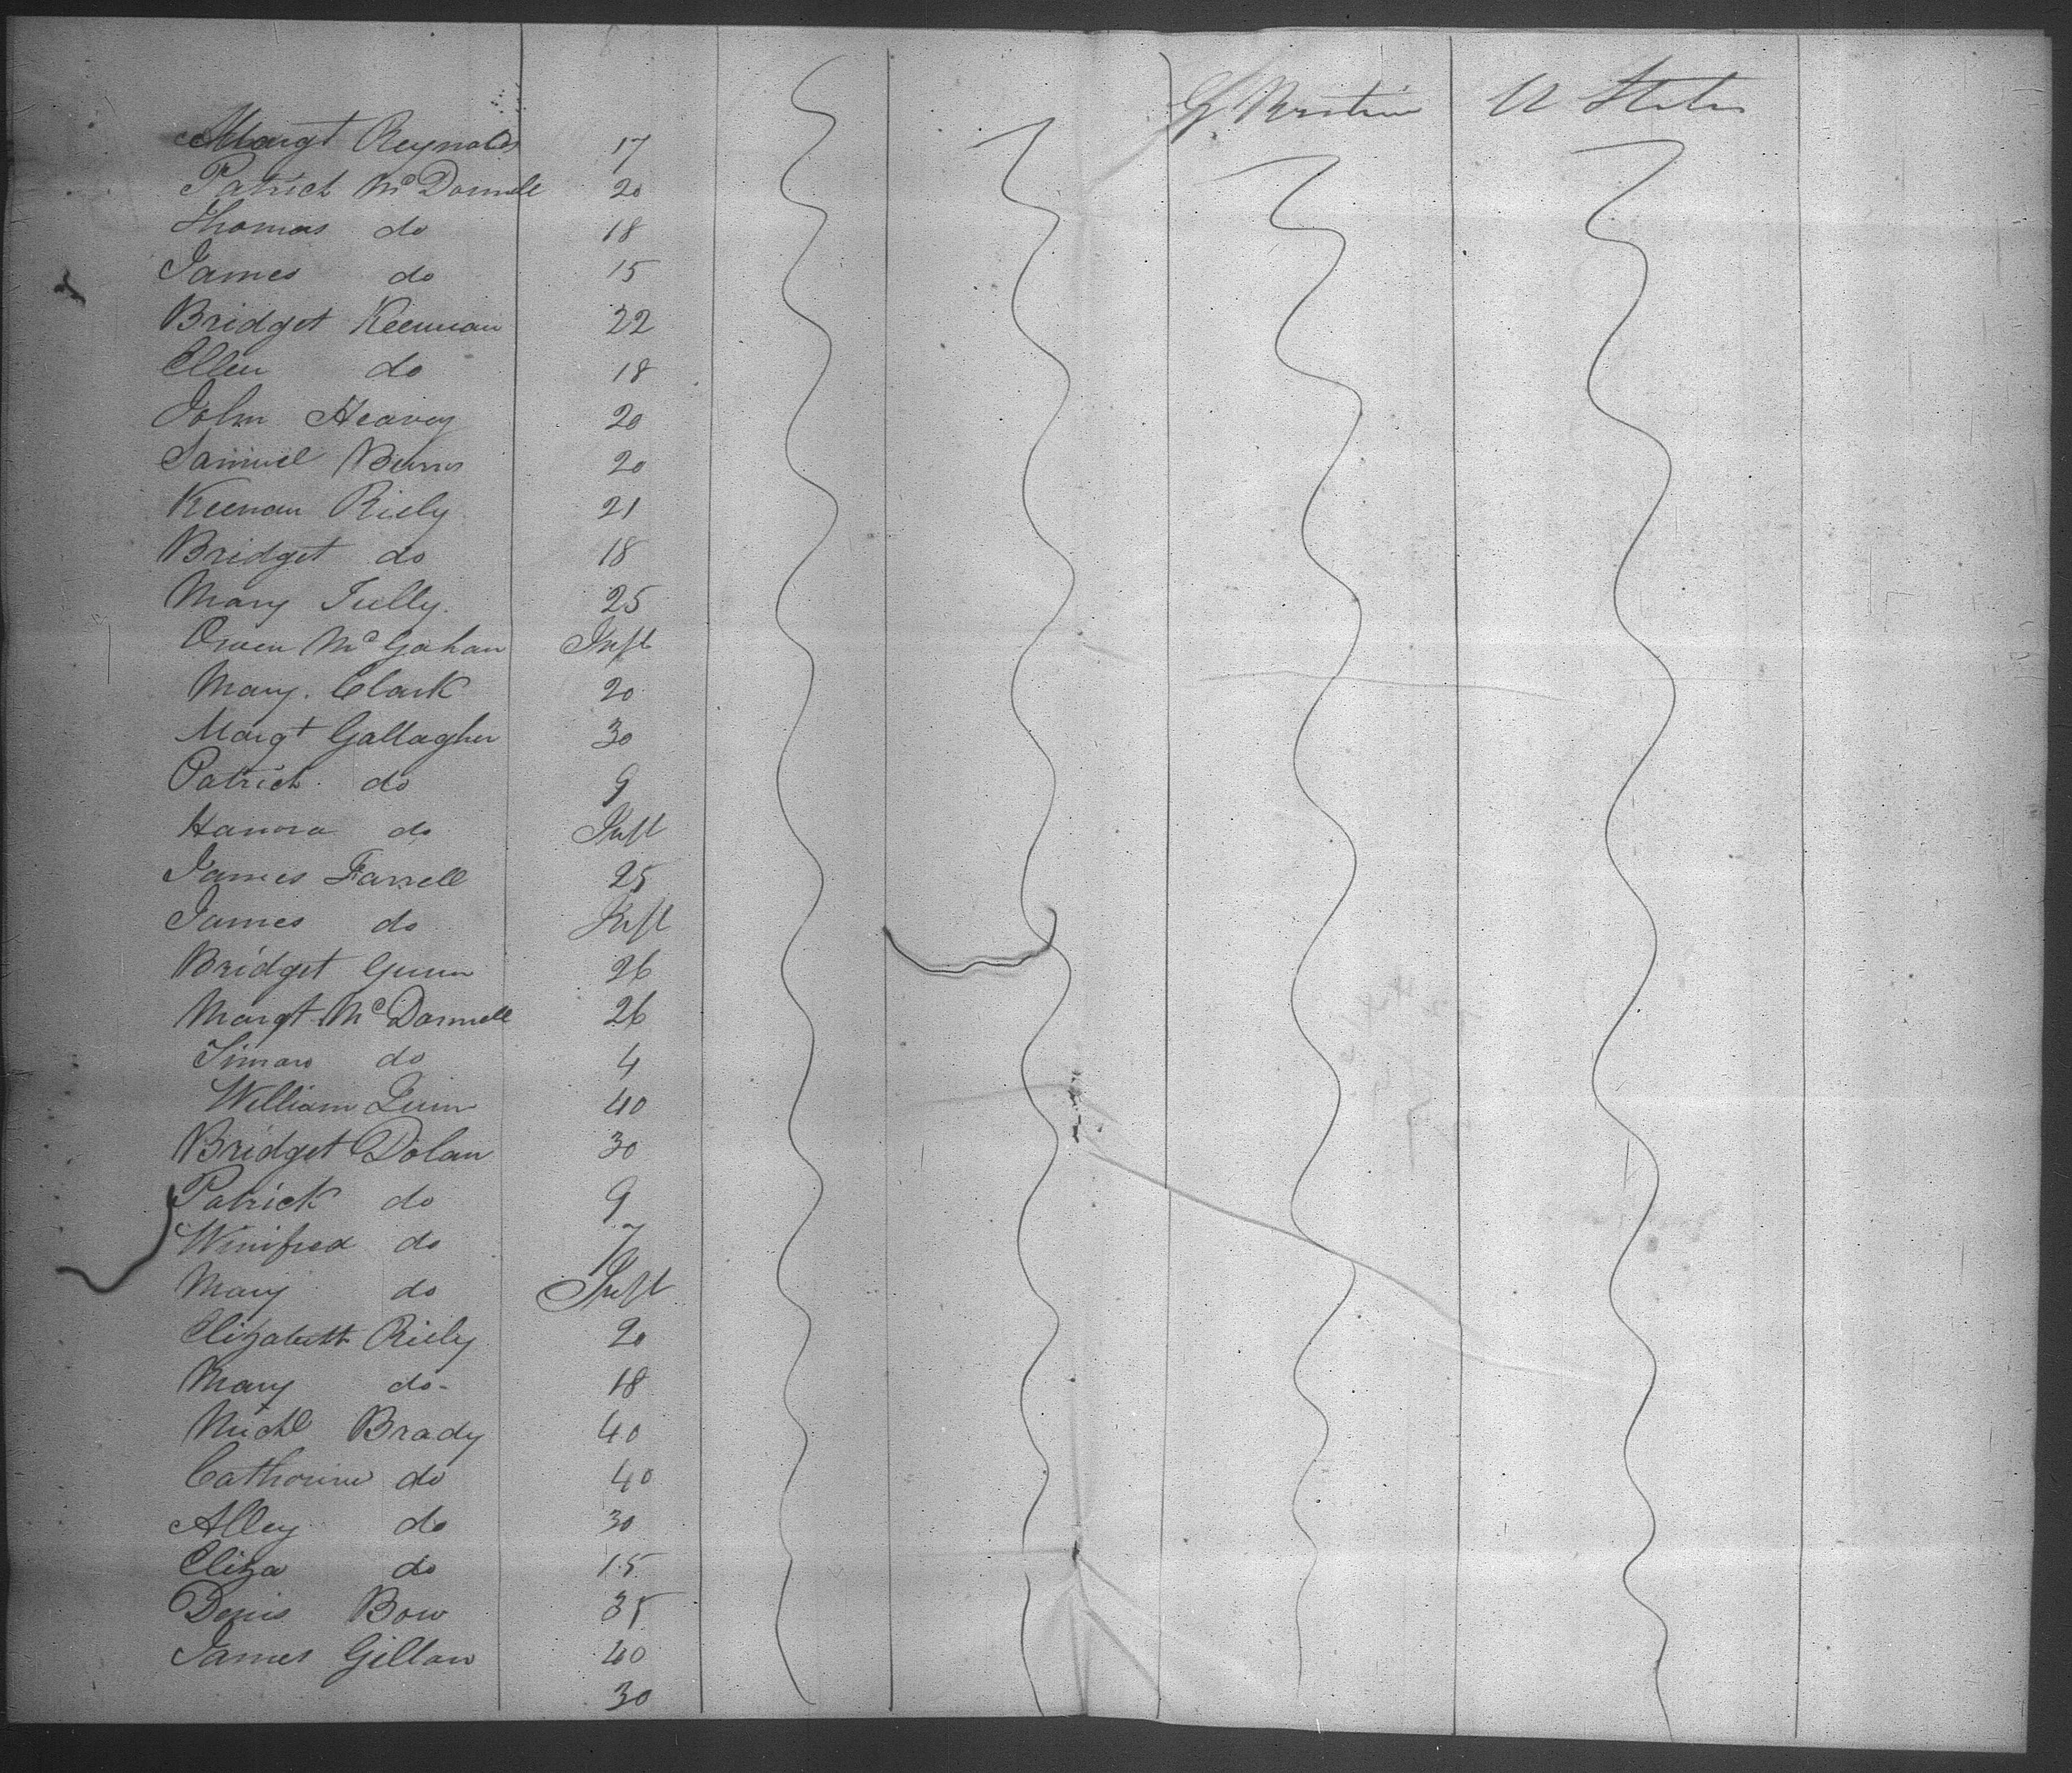 G Britain U States
Margt Reynolds 17
Patrick McDonnell 20
Thomas do 18
James do 15
Bridget Keenan 22
Ellen do 18
John Heavey 20
Samuel Burns 20
Keenan Riely 21
Bridget do 18
Mary Tully 25
Owen McGahan Inft
Mary Clark 20
Margt Gallagher 30
Patrick do 9
Hanora do Inft
James Farrell 25
James do Inft
Bridget Gunn 26
Margt McDonnell 26
Simon do 4
William Quin 40
Bridget Dolan 30
Patrick do 9
Winifred do 7
Mary do Inft
Elizabeth Riely 20
Mary do- 18
Michl Brady 40
Catherine do 40
Alley do 30
Eliza do 15
Denis Bow 35
James Gillan 40
30